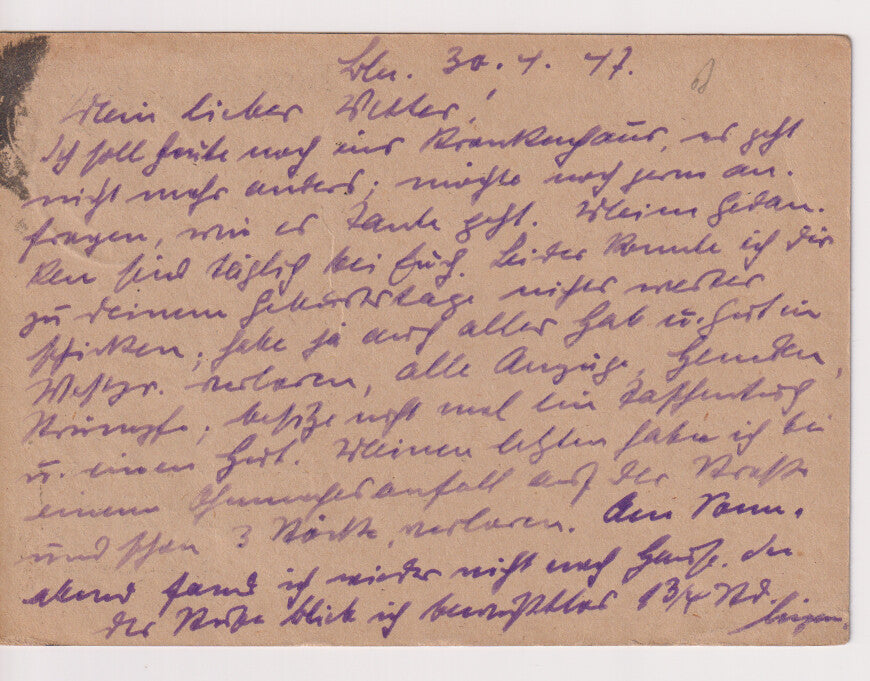 Bln. 30.4.47.
Mein lieber Vetter!
Ich soll heute noch ins Krankenhaus, es geht
nicht mehr anders; möchte noch gern an-
fragen, wie es Tante geht. Meine Gedan-
ken sind täglich bei Euch. Leider konnte ich dir
zu deinem Geburtstage nichts weiter
schicken; habe ja auch alles Hab u. Gut in
Westpr. verloren, alle Anzüge, Hemden,
Strümpfe; besitze nicht mal ein Taschentuch
u. einen Hut. Meinen letzten habe ich bei
einem Ohnmachtsanfall auf der Straße
und schon 3 Stöcke verloren. Am Sonn-
abend fand ich wieder nicht nach Hause. In
der Stube blieb ich bewußtlos 1 3/4 Std. liegen.